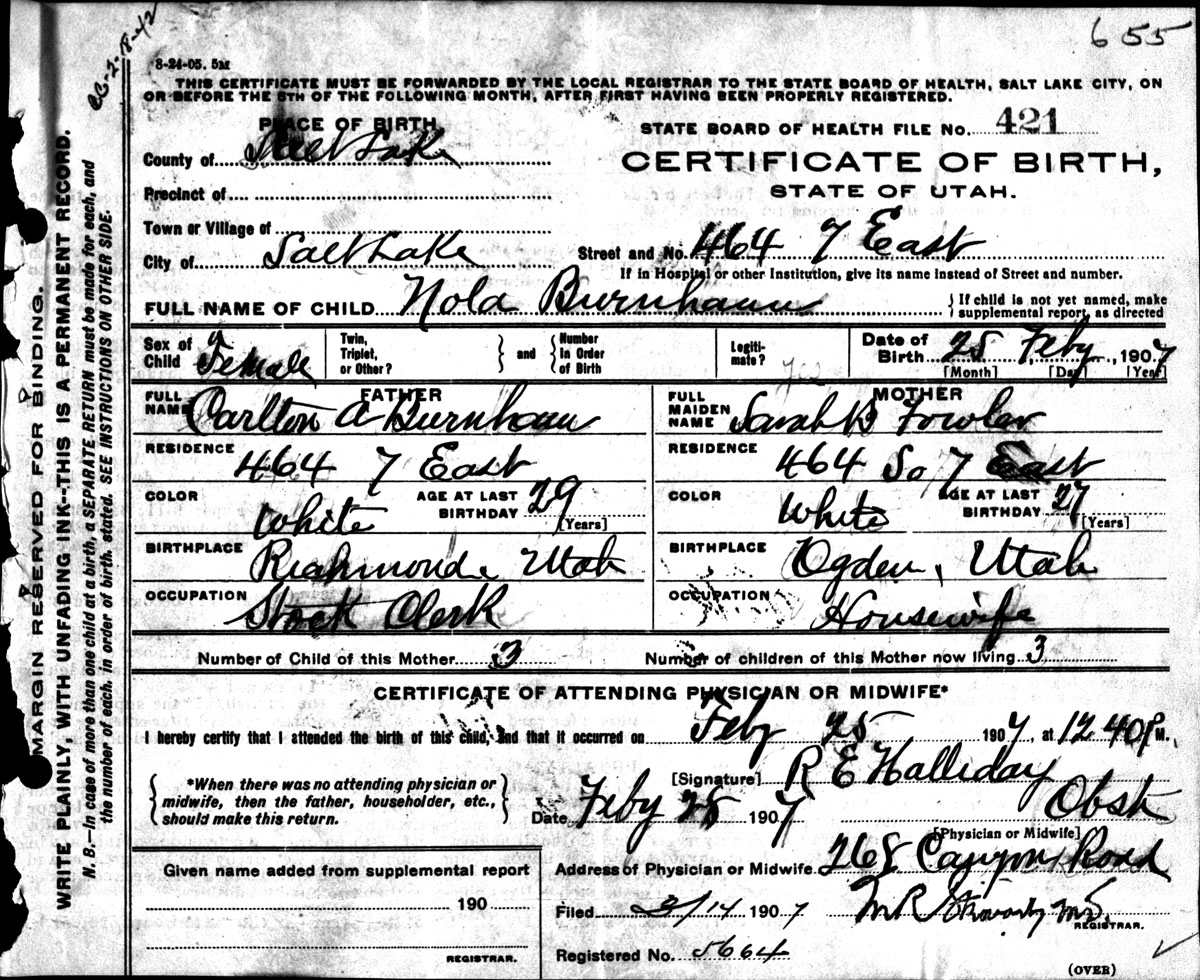 655
8-24-05. 5M
THIS CERTIFICATE MUST BE FORWARDED BY THE LOCAL REGISTRAR TO THE STATE BOARD OF HEALTH, SALT LAKE CITY, ON
OR BEFORE THE 5TH OF THE FOLLOWING MONTH, AFTER FIRST HAVING BEEN PROPERLY REGISTERED.
PLACE OF BIRTH
STATE BOARD OF HEALTH FILE No. 421
County of Salt Lake
CERTIFICATE OF BIRTH,
STATE OF UTAH.
Precinct of
Town or Village of
City of Salt Lake
Street and No. 464 7 East
If in Hospital or other Institution, give its name instead of Street and number.
FULL NAME OF CHILD Nola Burnham
{ If child is not yet named, make
supplemental report, as directed
Sex of Child Female
Twin, Triplet, or Other? } and { Number in Order of Birth
Legiti-mate? Yes
Date of Birth 25 Feby, 1907
[Month] [Day] [Year]
FATHER
FULL NAME Carlton A Burnham
RESIDENCE 464 7 East
COLOR White
AGE AT LAST BIRTHDAY 29 [Years]
BIRTHPLACE Richmond, Utah
OCCUPATION Stock Clerk
MOTHER
FULL MAIDEN NAME Sarah B Fowler
RESIDENCE 464 So 7 East
COLOR White
AGE AT LAST BIRTHDAY 27 [Years]
BIRTHPLACE Ogden, Utah
OCCUPATION Housewife
Number of Child of this Mother 3
Number of children of this Mother now living 3
CERTIFICATE OF ATTENDING PHYSICIAN OR MIDWIFE*
I hereby certify that I attended the birth of this child, and that it occurred on Feby 25 1907, at 12 40 P M.
{ *When there was no attending physician or
midwife, then the father, householder, etc.,
should make this return. }
[Signature] R E Halliday
Date Feby 28 1907
Obst
[Physician or Midwife]
Given name added from supplemental report
190
REGISTRAR.
Address of Physician or Midwife 268 Canyon Road
Filed 3/14 1907
M R
REGISTRAR.
Registered No. 5664
(OVER)
MARGIN RESERVED FOR BINDING.
WRITE PLAINLY, WITH UNFADING INK--THIS IS A PERMANENT RECORD.
N. B.--In case of more than one child at a birth, a SEPARATE RETURN must be made for each, and
the number of each, in order of birth, stated. SEE INSTRUCTIONS ON OTHER SIDE.